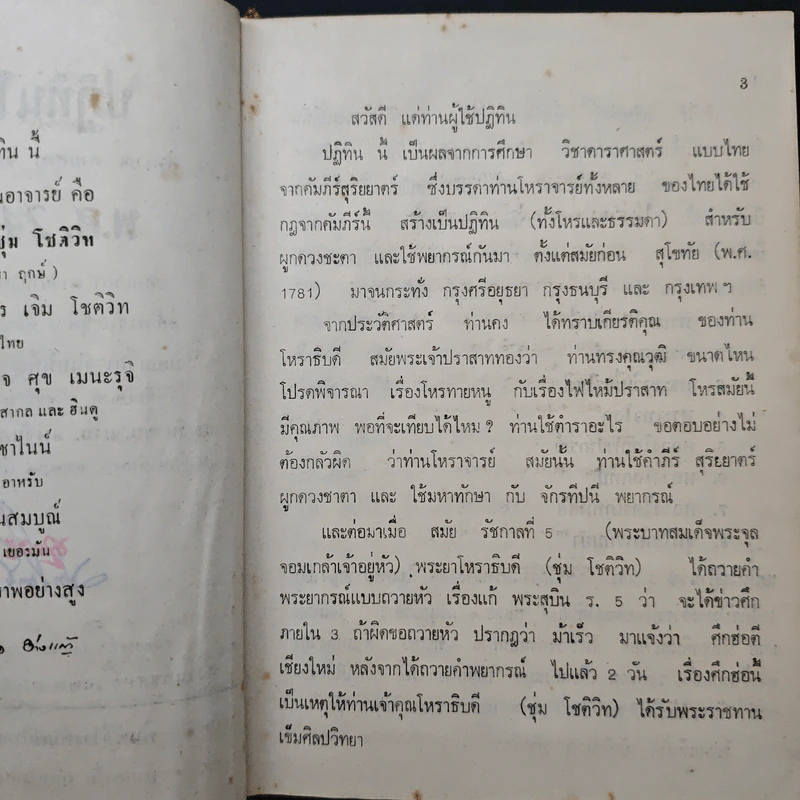 ทิน นี้
นอาจารย์ คือ
ชุ่ม โชติวิท
ฤกษ์ )
ร เจิม โชติวิท
ไทย
จ ศุข เมนะรุจิ
สากล และ ฮินดู
ชาไนน์
อาหรับ
นสมบูณ์
เยอรมัน
าพอย่างสูง
3
สวัสดี แด่ท่านผู้ใช้ปฎิทิน
ปฎิทิน นี้ เป็นผลจากการศึกษา วิชาดาราศาสตร์ แบบไทย
จากคัมภีร์สุริยยาตร์ ซึ่งบรรดาท่านโหราจารย์ทั้งหลาย ของไทยได้ใช้
กฎจากคัมภีร์นี้ สร้างเป็นปฎิทิน (ทั้งโหรและธรรมดา) สำหรับ
ผูกดวงชะตา และใช้พยากรณ์กันมา ตั้งแต่สมัยก่อน สุโขทัย (พ.ศ.
1781) มาจนกระทั่ง กรุงศรีอยุธยา กรุงธนบุรี และ กรุงเทพฯ
จากประวัติศาสตร์ ท่านคง ได้ทราบเกียรติคุณ ของท่าน
โหราธิบดี สมัยพระเจ้าปราสาททองว่า ท่านทรงคุณวุฒิ ขนาดไหน
โปรดพิจารณา เรื่องโหรทายหนู กับเรื่องไฟไหม้ปราสาท โหรสมัยนี้
มีคุณภาพ พอที่จะเทียบได้ไหม ? ท่านใช้ตำราอะไร ขอตอบอย่างไม่
ต้องกลัวผิด ว่าท่านโหราจารย์ สมัยนั้น ท่านใช้คำภีร์ สุริยยาตร์
ผูกดวงชาตา และ ใช้มหาทักษา กับ จักรทีปนี พยากรณ์
และต่อมาเมื่อ สมัย รัชกาลที่ 5 (พระบาทสมเด็จพระจุล
จอมเกล้าเจ้าอยู่หัว) พระยาโหราธิบดี (ชุ่ม โชติวิท) ได้ถวายคำ
พระยากรณ์แบบถวายหัว เรื่องแก้ พระสุบิน ร. 5 ว่า จะได้ข่าวศึก
ภายใน 3 ถ้าผิดขอถวายหัว ปรากฎว่า ม้าเร็ว มาแจ้งว่า ศึกฮ่อตี
เชียงใหม่ หลังจากได้ถวายคำพยากรณ์ ไปแล้ว 2 วัน เรื่องศึกฮ่อนี้
เป็นเหตุให้ท่านเจ้าคุณโหราธิบดี (ชุ่ม โชติวิท) ได้รับพระราชทาน
เข็มศิลปวิทยา